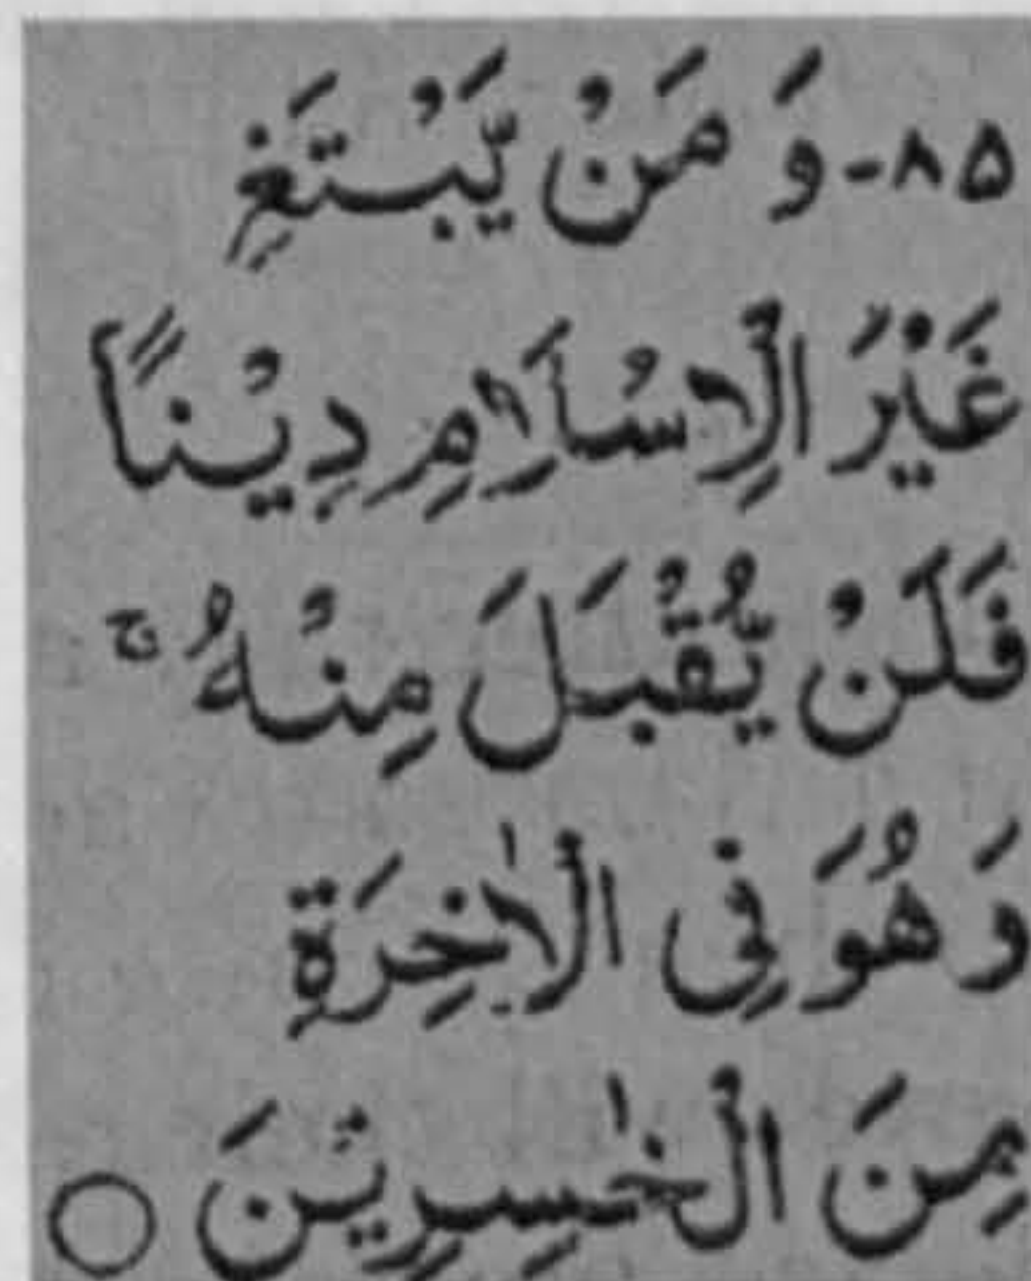 ۸۵- وَ مَنْ يَّبْتَغِ
غَيْرَ الْاِسْلَامِ دِيْنًا
فَلَنْ يُّقْبَلَ مِنْهُ ۚ
وَ هُوَ فِي الْاٰخِرَةِ
مِنَ الْخٰسِرِيْنَ ○